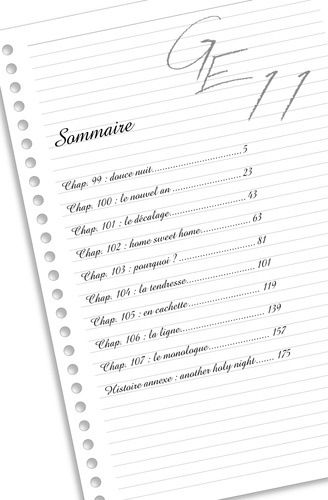 GE 11
Sommaire
Chap. 99 : douce nuit..............................5
Chap. 100 : le nouvel an ........................23
Chap. 101 : le décalage..........................43
Chap. 102 : home sweet home.................63
Chap. 103 : pourquoi ?..........................81
Chap. 104 : la tendresse.......................101
Chap. 105 : en cachette........................119
Chap. 106 : la ligne.............................139
Chap. 107 : le monologue.....................157
Histoire annexe : another holy night...... 175